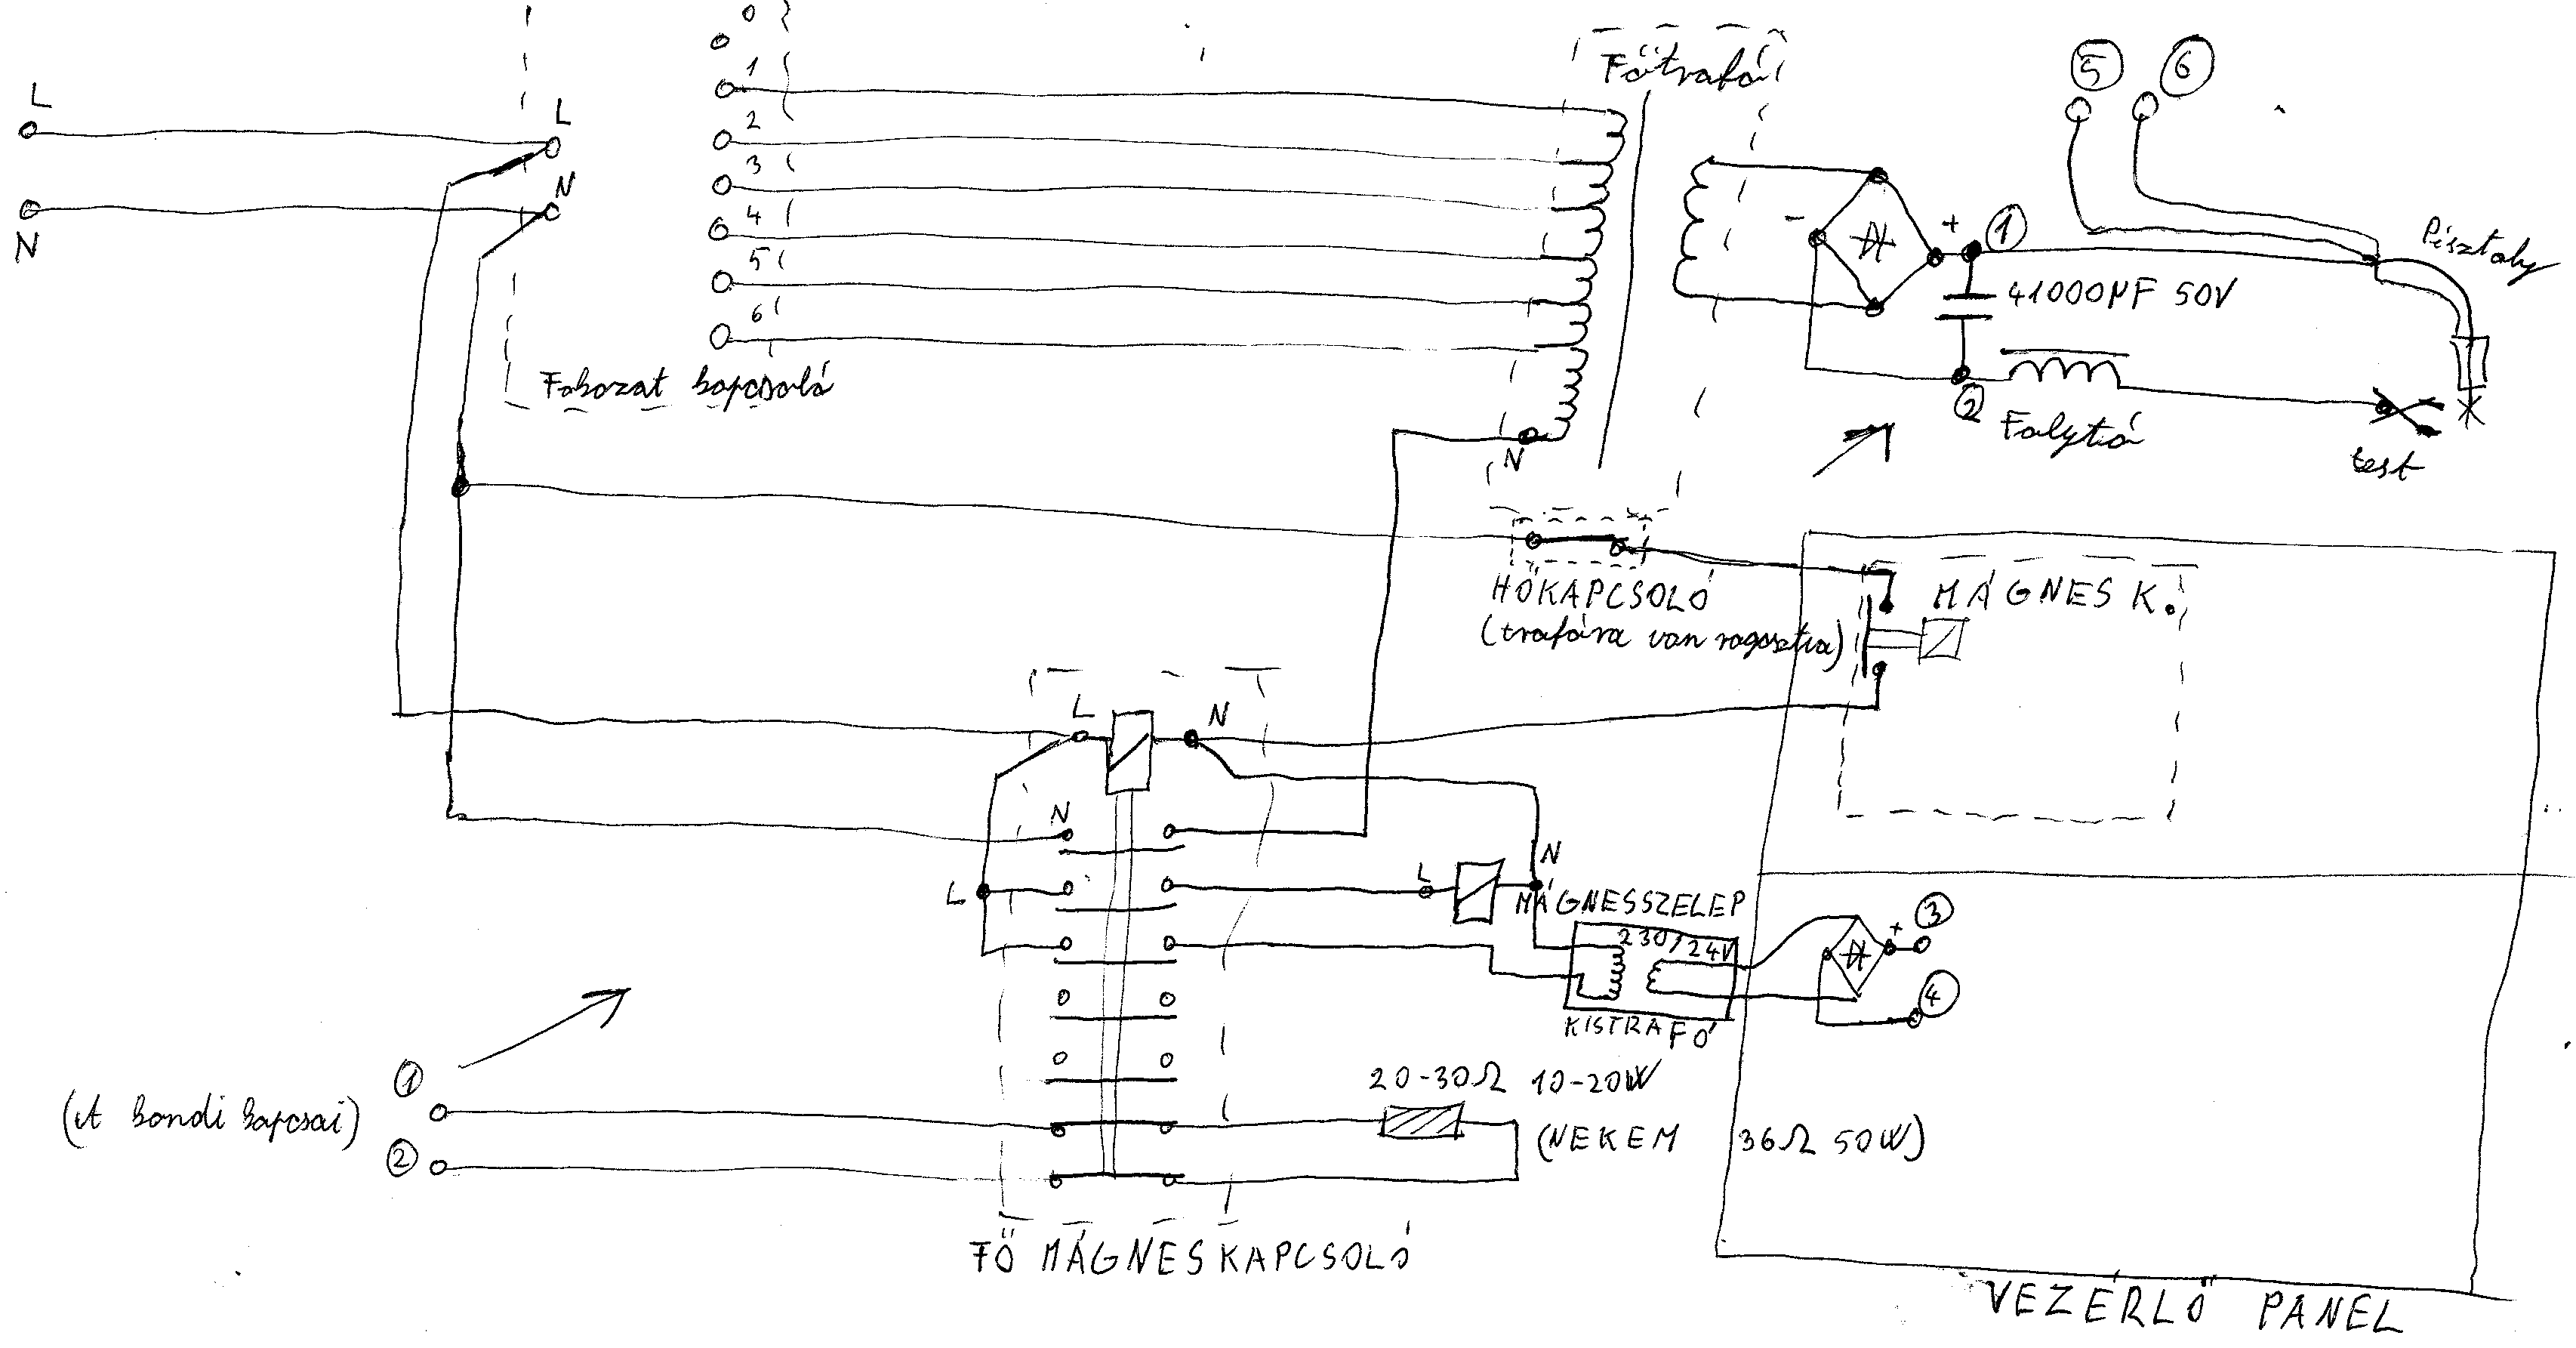 0
1
2
3
4
5
6
L
N
L
N
Fokozat kapcsoló
Főtrafó
N
-
+
①
41000µF 50V
②
Folytió
⑤
⑥
Pisztoly
test
HŐKAPCSOLÓ
(trafóra van ragasztva)
MÁGNES K.
L
N
N
L
L
N
MÁGNESSZELEP
230/24V
KISTRAFÓ
+
③
④
20-30Ω 10-20W
(NEKEM 36Ω 50W)
①
(A kondi kapcsai)
②
FŐ MÁGNESKAPCSOLÓ
VEZÉRLŐ PANEL